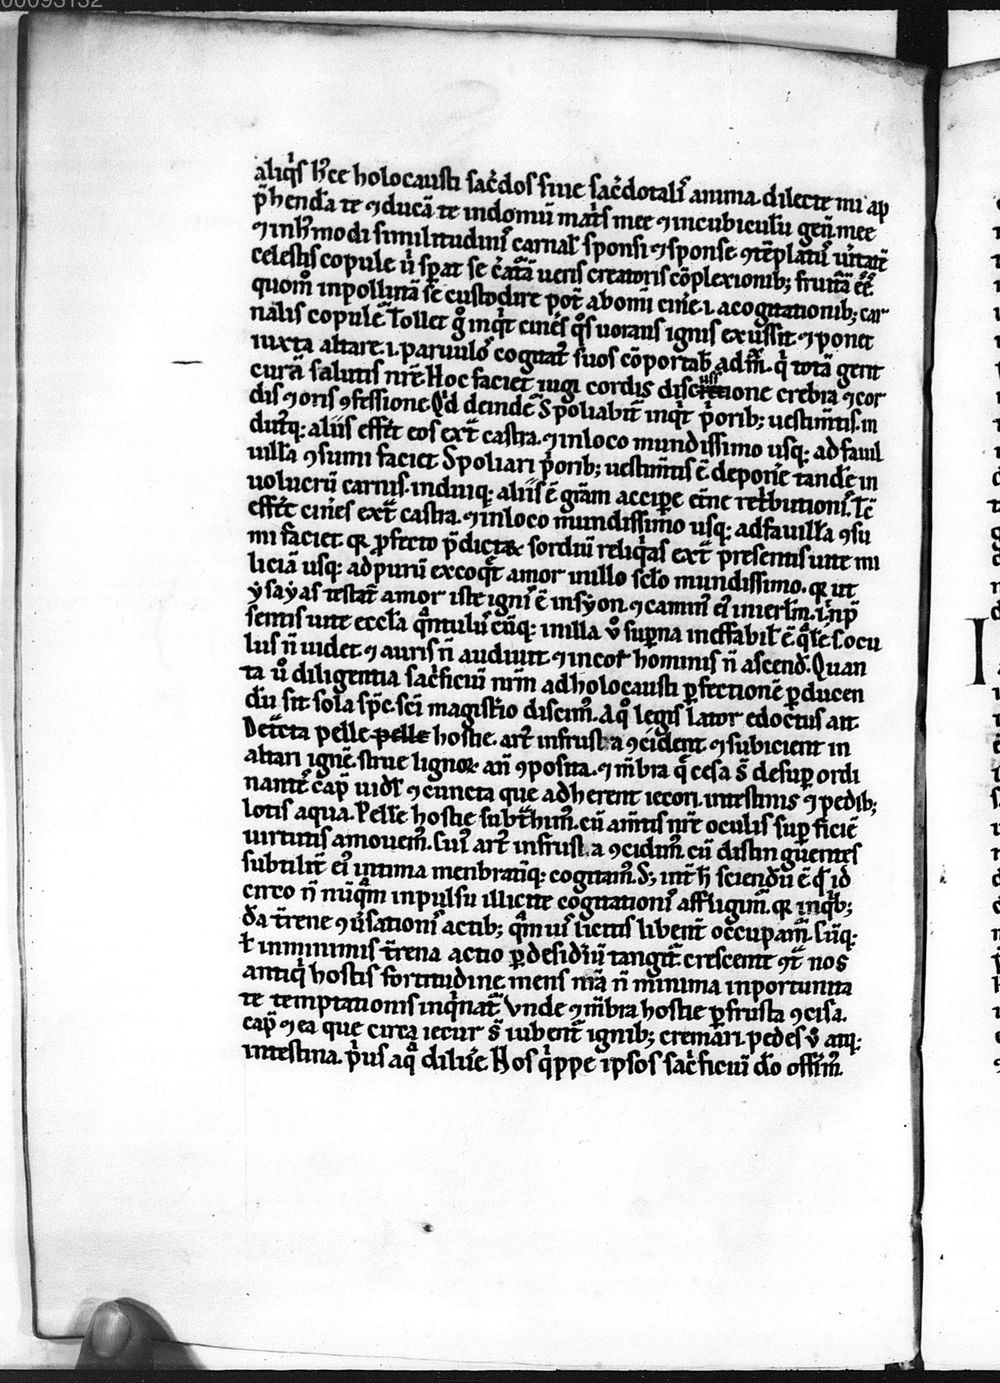 00095132
aliq̇s hͥce holocausti sac̄dos siue sac̄dotalis anima. dilecte mi ap
p̄hendā te ⁊ ducā te in domū matͥs mee ⁊ in cubiculū gen̄. mee
⁊ in hͥmodi similitudinis carnal̄ sponsi ⁊ sponse ꝯtēplatiū
celestis copule ū sp̄at se ueris creatoris cōplexionib; fruitā eē
quom̄ in pollutā se custodire pot̄ ab omī cine .i. a cogitationib; car
nalis copule Tollet g̊ inq̇t cineͤs q̊s uorans ignis exussit ⁊ ponet
iuxta altare .i. paruulos cogitat̄ suos cōportab̄ ad q̇ totā gerit
curā salutis nr̄e Hoc faciet iugi cordis discussione crebra ⁊ cor
dis ⁊ oris ꝯfessione. Qd̄ deinde Spoliabit̄ inq̇t ṗorib; uestim̄tis. in
dutꝰq: aliis effēt eos ext̄ castra. ⁊ in loco mundissimo usq: ad fauil
uillā ꝯsumi faciet Spoliari ṗorib; uestim̄tis ē deponͤe tandē in
uolucrū carnis. induiq: aliis ē gl̄am accipe eͤne ret̄butionis. Tc̄
effēt cineͤs ext̄ castra. ⁊ in loco mundissimo usq: ad fauillā ꝯsu
mi faciet. qꝛ ꝓfecto p̄dictaꝝ sordiū reliq̇as ext̄ presentis uite mi
liciā usq: ad purū excoq̄t amor in illo sc̄lo mundissimo. qꝛ ut
ẏsaẏas testat̄ amor iste ignis ē in sẏon. ⁊ caminꝰ eiꝰ in ierl̄m. in p̄
sentis uite eccl̄a q̄ntulūcūq: in illa ů sup̄na ineffabil̄ ē q̄lͤe. Locu
lus n̄ uidet ⁊ auris n̄ audiuit ⁊ in cor hominis n̄ ascend̄. Quan
ta ů diligentia sac̄ficiū nrm̄ ad holocausti ꝑfectionē ꝑducen
dū sit sola sp̄c sc̄i magistͥo discimꝰ. A q̊ legis lator edoctus ait
Det̄cta pelle pelle hostie. artꝰ in frusta ꝯcident ⁊ subicient in
altari ignē. strue lignoꝝ an̄ ꝯposita. ⁊ mēbra q̄ cesa s̄ desup̄ ordi
nantē cap̄ uid̄ꝫ ⁊ cuncta que adherent iecori. intestinis ⁊ pedib;
lotis aqua. Pellē hostie subt̄himꝰ. cū am̄tis nr̄e oculis sup̄ficiē
uirtutis amouemꝰ. Cuiꝰ artꝰ in frusta ꝯcidimꝰ. cū distinguentes
subtilit̄ eiꝰ intima menbratīq: cogitamꝰ. S; int̄ h̄ sciendū ē q̇d
circo n̄ nūq̄m inpulsu illicite cogitationis affligimꝰ. qꝛ in q̇b;
dā t̄rene ꝯůsationis actib; q̄muis licitis libent̄ occupamꝰ. Cūq:
ł in minimis t̄rena actio ꝑ desideriū tangit̄ crescente ꝯt̄ nos
antiq̇ hostis fortitudine mens nr̄a n̄ minima inportunita
te temptationis inq̇nat̄ Vnde ⁊ mēbra hostie ꝑ frusta ꝯcisa.
cap̄ ⁊ ea que circa iecur s̄ iubent̄ ignib; cremari. pedes ů atq:
intestina. pͥus aq̄ diluͤe. Hos q̇ppe ipsos sac̄ficiū dō offimꝰ.